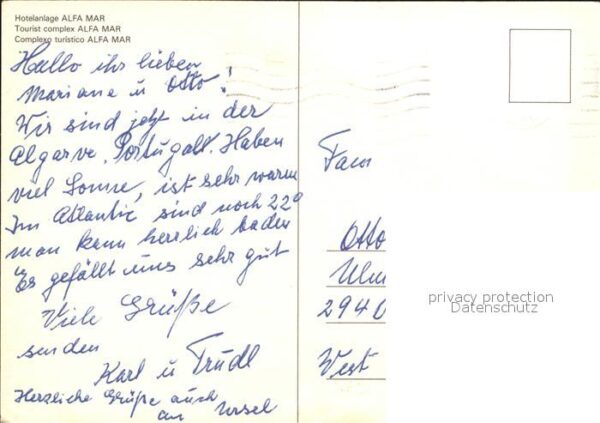 Hotelanlage ALFA MAR
Tourist complex ALFA MAR
Complexo turístico ALFA MAR
Hallo ihr lieben
Mariane u Otto!
Wir sind jetzt in der
Algarve, Portugall. Haben
viel Sonne, ist sehr warm
Im Atlantic sind noch 22°
man kann herrlich baden
Es gefällt uns sehr gut
Viele Grüße
senden
Karl u Trudl
Herzliche Grüße auch
an Ursel
Fam
Otto
Ulm
2940
West
privacy protection
Datenschutz